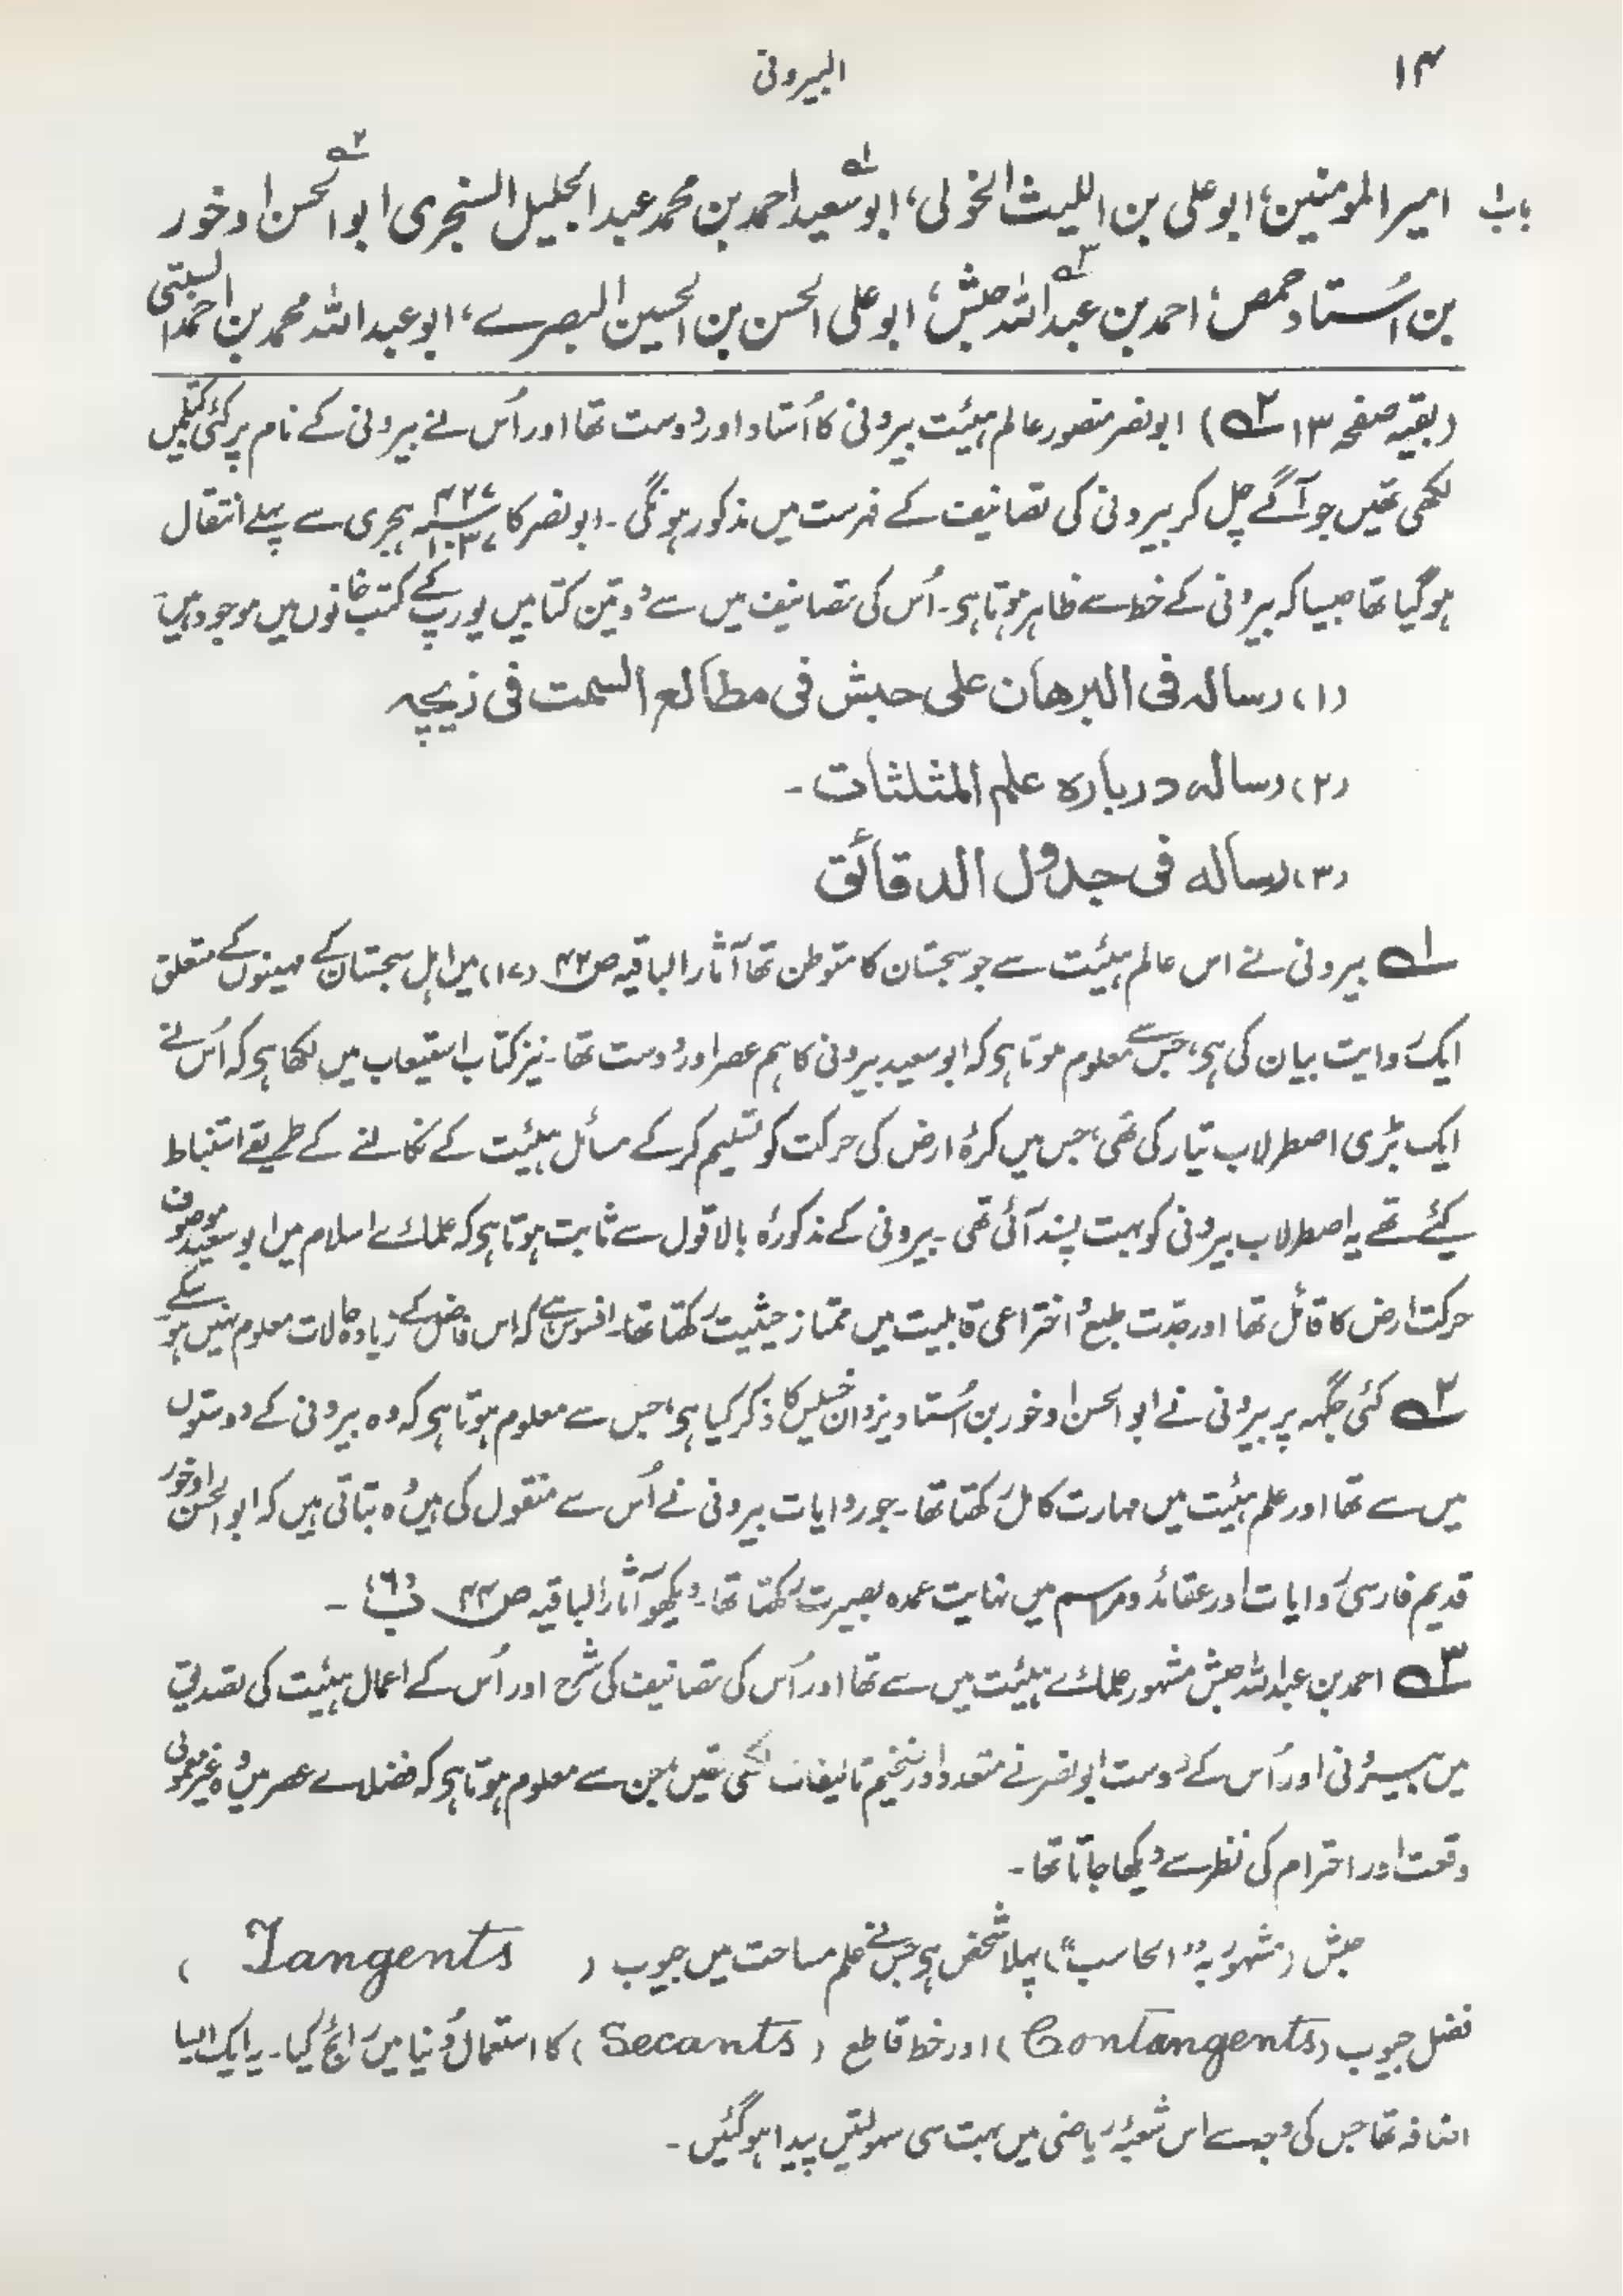 ۱۴ البیرونی
باب۱ امیر المومنین، ابو علی بن اللیث الخولی، ابو سعید۱؎ احمد بن محمد عبد الجلیل السنجری ابو الحسن۲؎ اوخور
بن اُستاد حمص، احمد بن عبد اللہ۳؎ حبش، ابو علی الحسن بن الحسین البصرے، ابو عبد اللہ محمد بن احمد السبتی
(بقیہ صفحہ ۱۳ ۲؎) ابو نصر منصور عالم ہیئت بیرونی کا اُستاد اور دوست تھا اور اُس نے بیرونی کے نام پر کئی کتابیں
لکھی تھیں جو آگے چل کر بیرونی کی تصانیف کے فہرست میں مذکور ہونگی ۔ ابو نصر کا ۴۲۷ ۱۰۳۷ ہجری سے پہلے انتقال
ہو گیا تھا جیسا کہ بیرونی کے خط سے ظاہر ہوتا ہی۔ اُس کی تصانیف میں سے دو تین کتابیں یورپ کے کتب خانوں میں موجود ہیں
(۱) رسالہ فی البرھان علی حبش فی مطالع السمت فی زیچہ
(۲) رسالہ دربارہ علم المثلثات ۔
(۳) رسالہ فی جدول الدقائق
۱؎ بیرونی نے اس عالم ہیئت سے جو سجستان کا متوطن تھا آثار الباقیہ ص ۴۲ (۱۷) میں اہل سجستان کے مہینوں کے متعلق
ایک روایت بیان کی ہی، جس سے معلوم ہوتا ہی کہ ابو سعید بیرونی کا ہم عصر اور دوست تھا ۔ نیز کتاب استیعاب میں لکھا ہی کہ اُس نے
ایک بڑی اصطرلاب تیار کی تھی، جس میں کرۂ ارض کی حرکت کو تسلیم کر کے مسائل ہیئت کے نکالنے کے طریقے استنباط
کیئے تھے یہ اصطرلاب بیرونی کو بہت پسند آئی تھی ۔ بیرونی کے مذکورۂ بالا قول سے ثابت ہوتا ہی کہ علمائے اسلام میں ابو سعید موصوف
حرکت ارض کا قائل تھا اور جدت طبع و اختراعی قابلیت میں ممتاز حیثیت رکھتا تھا۔ افسوس ہی کہ اس فاضل کے زیادہ حالات معلوم نہیں ہو سکے
۲؎ کئی جگہ پر بیرونی نے ابو الحسن اوخور بن اُستاد یزدان خسیس کا ذکر کیا ہی، جس سے معلوم ہوتا ہی کہ وہ بیرونی کے دوستوں
میں سے تھا اور علم ہیئت میں مہارت کامل رکھتا تھا ۔ جو روایات بیرونی نے اُس سے منقول کی ہیں وہ بتاتی ہیں کہ ابو الحسن اوخور
قدیم فارسی روایات اور عقائد و مراسم میں نہایت عمدہ بصیرت رکھتا تھا۔ دیکھو آثار الباقیہ ص ۴۴ ب (۶) ۔
۳؎ احمد بن عبد اللہ حبش مشہور علمائے ہیئت میں سے تھا اور اُس کی تصانیف کی شرح اور اُس کے اعمال ہیئت کی تصدیق
میں بیرونی اور اُس کے دوست ابو نصر نے متعدد اور ضخیم تالیفات لکھی تھیں جن سے معلوم ہوتا ہی کہ فضلاے عصر میں وہ غیر معمولی
وقعت اور احترام کی نظر سے دیکھا جاتا تھا ۔
حبش (مشہور بہ "الحاسب") پہلا شخص ہی جس نے علم مساحت میں جیوب ( Tangents )
فضل جیوب (Contangents) اور خط قاطع (Secants) کا استعمال دُنیا میں رائج کیا۔ یہ ایک ایسا
اضافہ تھا جس کی وجہ سے اس شعبۂ ریاضی میں بہت سی سہولتیں پیدا ہو گئیں ۔